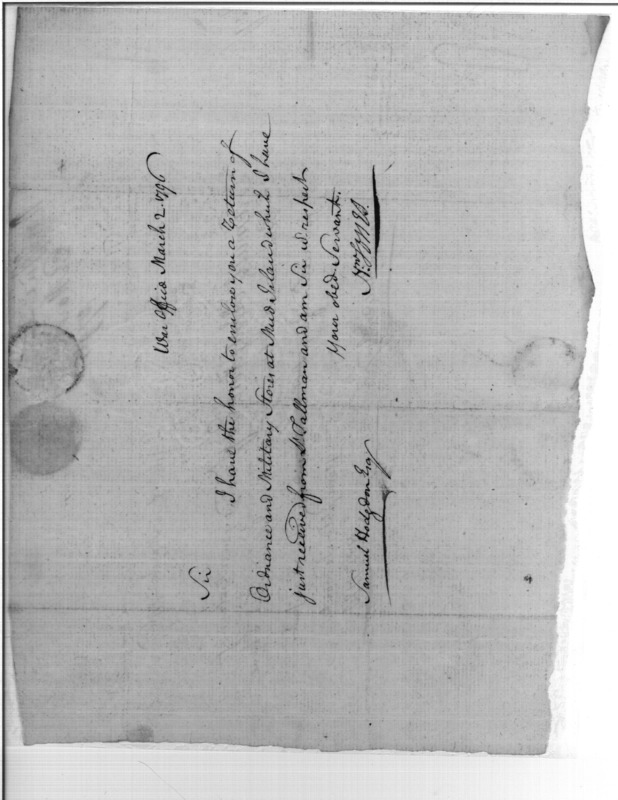 War Office March 2. 1796
Sir
I have the honor to enclose you a Return of
Ordnance and Military Stores at Mud Island which I have
just received from Lt Tallman and am Sir wh respect
Your obed Servant.
Samuel Hodgdon Esq